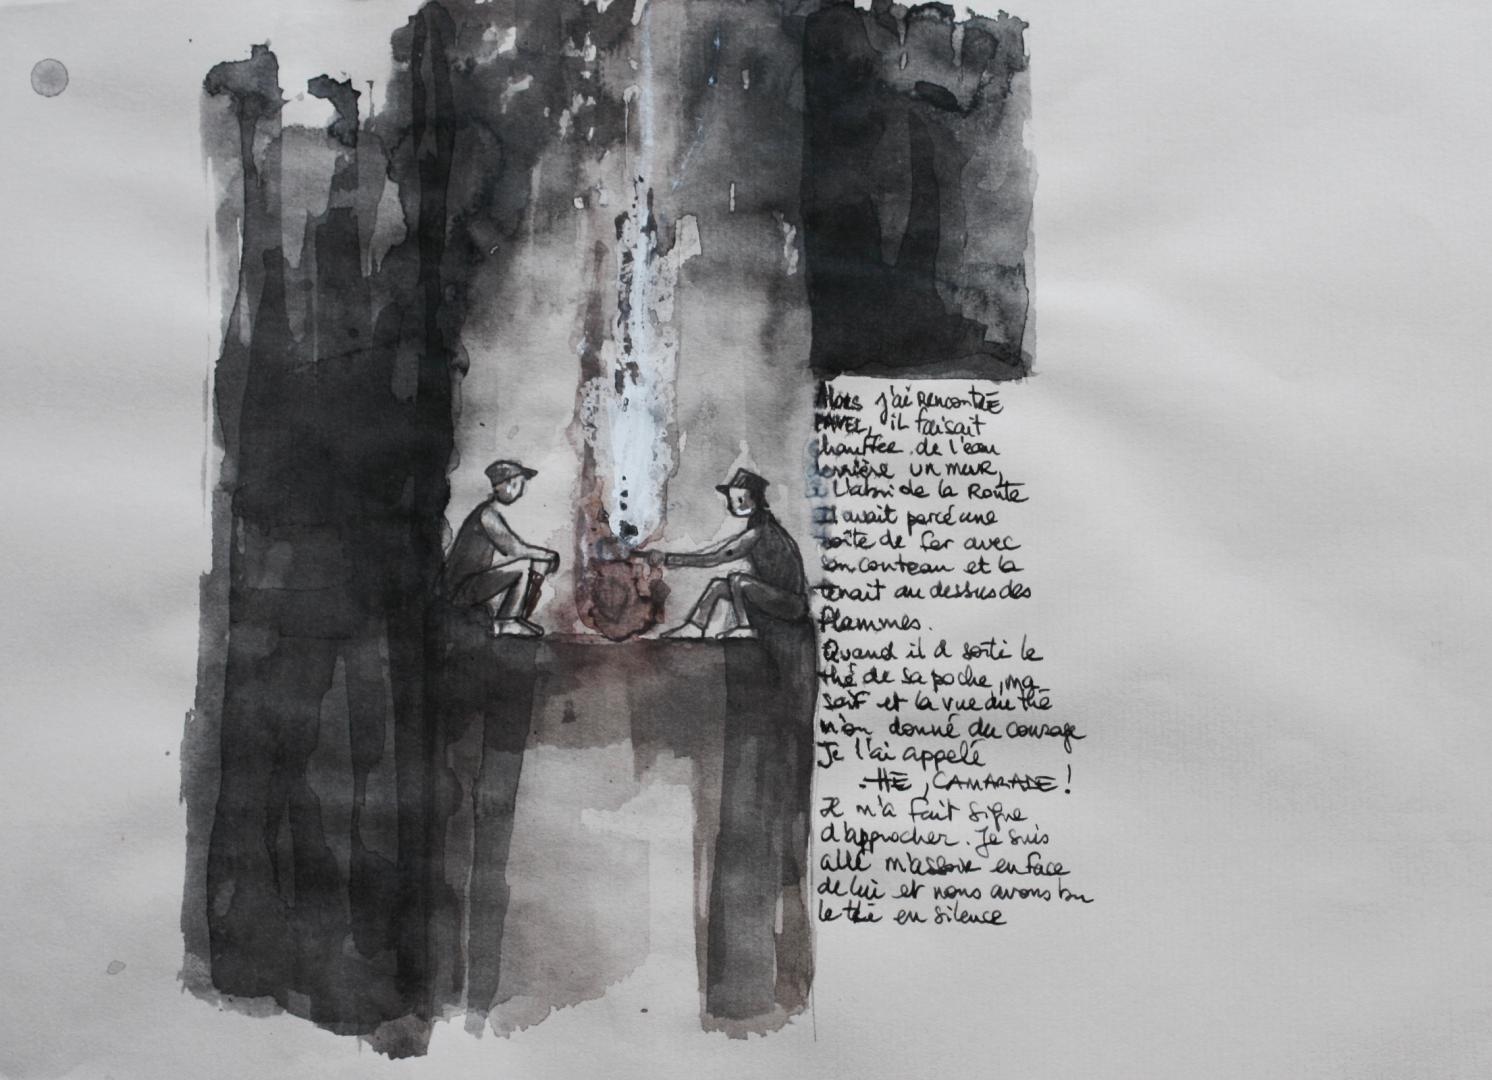 Alors j'ai rencontré
PAVEL, il faisait
chauffer de l'eau
derrière un mur,
à l'abri de la Route
Il avait percé une
boîte de fer avec
son couteau et la
tenait au dessus des
flammes.
Quand il a sorti le
thé de sa poche, ma
soif et la vue du thé
m'on donné du courage
Je l'ai appelé
- HÉ, CAMARADE !
Il m'a fait signe
d'approcher. Je suis
allé m'assoir en face
de lui et nous avons bu
le thé en silence